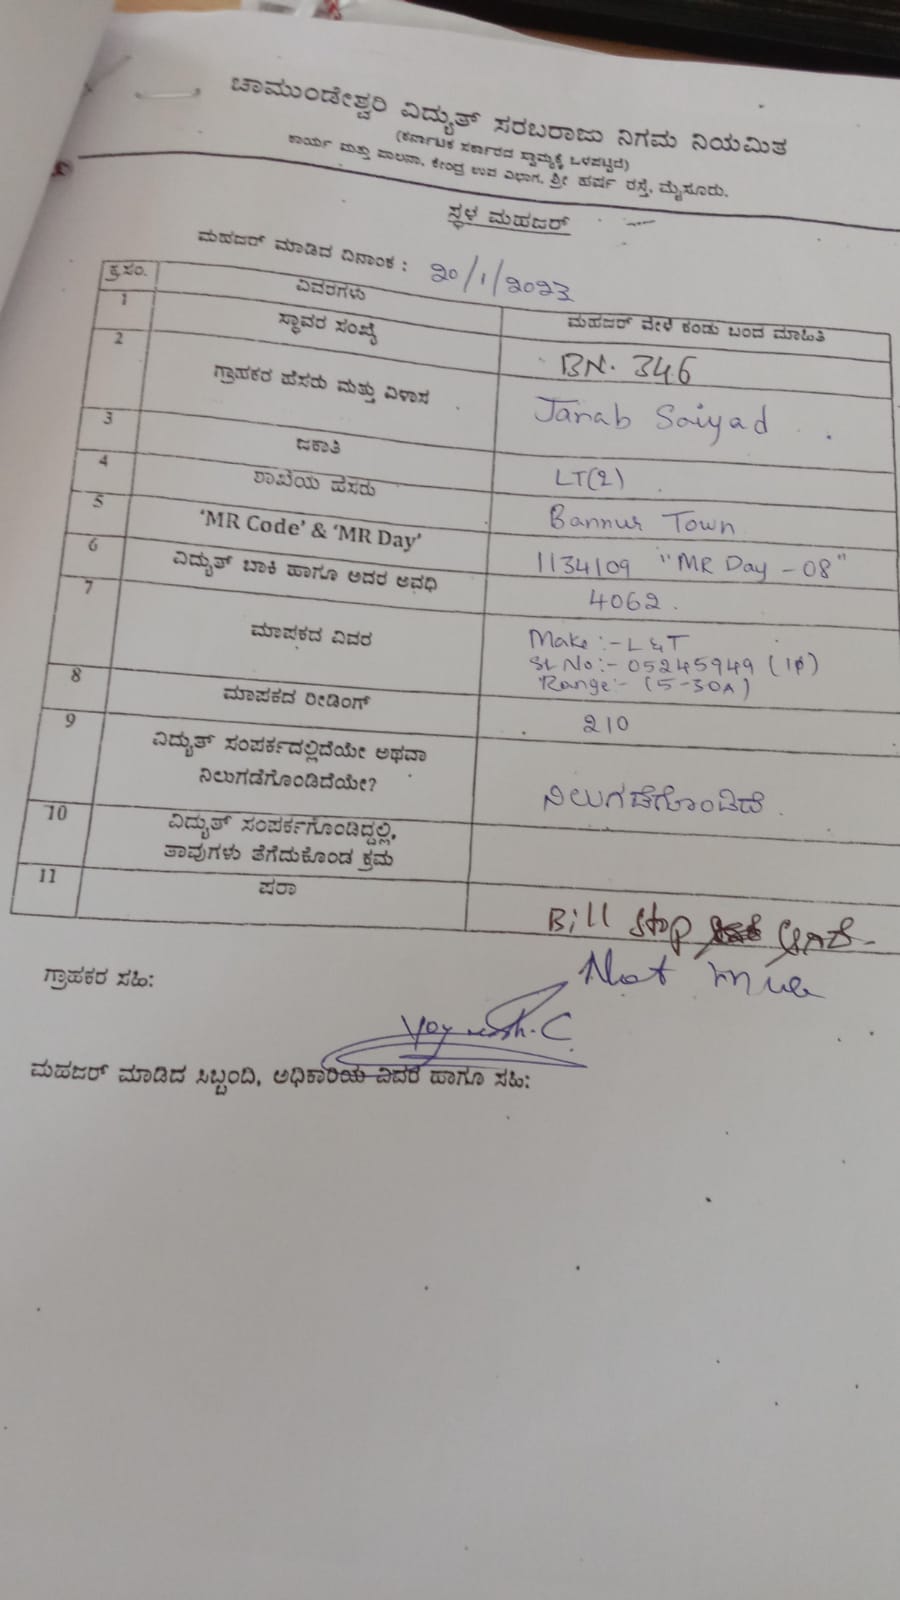 ಚಾಮುಂಡೇಶ್ವರಿ ವಿದ್ಯುತ್ ಸರಬರಾಜು ನಿಗಮ ನಿಯಮಿತ
(ಕರ್ನಾಟಕ ಸರ್ಕಾರದ ಸ್ವಾಮ್ಯಕ್ಕೆ ಒಳಪಟ್ಟಿದೆ)
ಕಾರ್ಯ ಮತ್ತು ಪಾಲನಾ, ಕೇಂದ್ರ ಉಪ ವಿಭಾಗ, ಶ್ರೀ ಹರ್ಷ ರಸ್ತೆ, ಮೈಸೂರು.
ಸ್ಥಳ ಮಹಜರ್
ಮಹಜರ್ ಮಾಡಿದ ದಿನಾಂಕ : ೨೦/೧/೨೦೨೩
ಕ್ರ.ಸಂ. ವಿವರಗಳು ಮಹಜರ್ ವೇಳೆ ಕಂಡು ಬಂದ ಮಾಹಿತಿ
1 ಸ್ಥಾವರ ಸಂಖ್ಯೆ BN. 346
2 ಗ್ರಾಹಕರ ಹೆಸರು ಮತ್ತು ವಿಳಾಸ Janab Saiyad
3 ಜಕಾತಿ LT(2)
4 ಶಾಖೆಯ ಹೆಸರು Bannur Town
5 'MR Code' & 'MR Day' 1134109 "MR Day - 08"
6 ವಿದ್ಯುತ್ ಬಾಕಿ ಹಾಗೂ ಅದರ ಅವಧಿ 4062.
7 ಮಾಪಕದ ವಿವರ Make :- L & T
Sl No:- 05245949 (1φ)
Range:- (5-30A)
8 ಮಾಪಕದ ರೀಡಿಂಗ್ 210
9 ವಿದ್ಯುತ್ ಸಂಪರ್ಕದಲ್ಲಿದೆಯೇ ಅಥವಾ
ನಿಲುಗಡೆಗೊಂಡಿದೆಯೇ? ನಿಲುಗಡೆಗೊಂಡಿದೆ.
10 ವಿದ್ಯುತ್ ಸಂಪರ್ಕಗೊಂಡಿದ್ದಲ್ಲಿ,
ತಾವುಗಳು ತೆಗೆದುಕೊಂಡ ಕ್ರಮ
11 ಷರಾ Bill stop
Not
ಗ್ರಾಹಕರ ಸಹಿ:
Yogeesh.C
ಮಹಜರ್ ಮಾಡಿದ ಸಿಬ್ಬಂದಿ, ಅಧಿಕಾರಿಯ ವಿವರ ಹಾಗೂ ಸಹಿ: